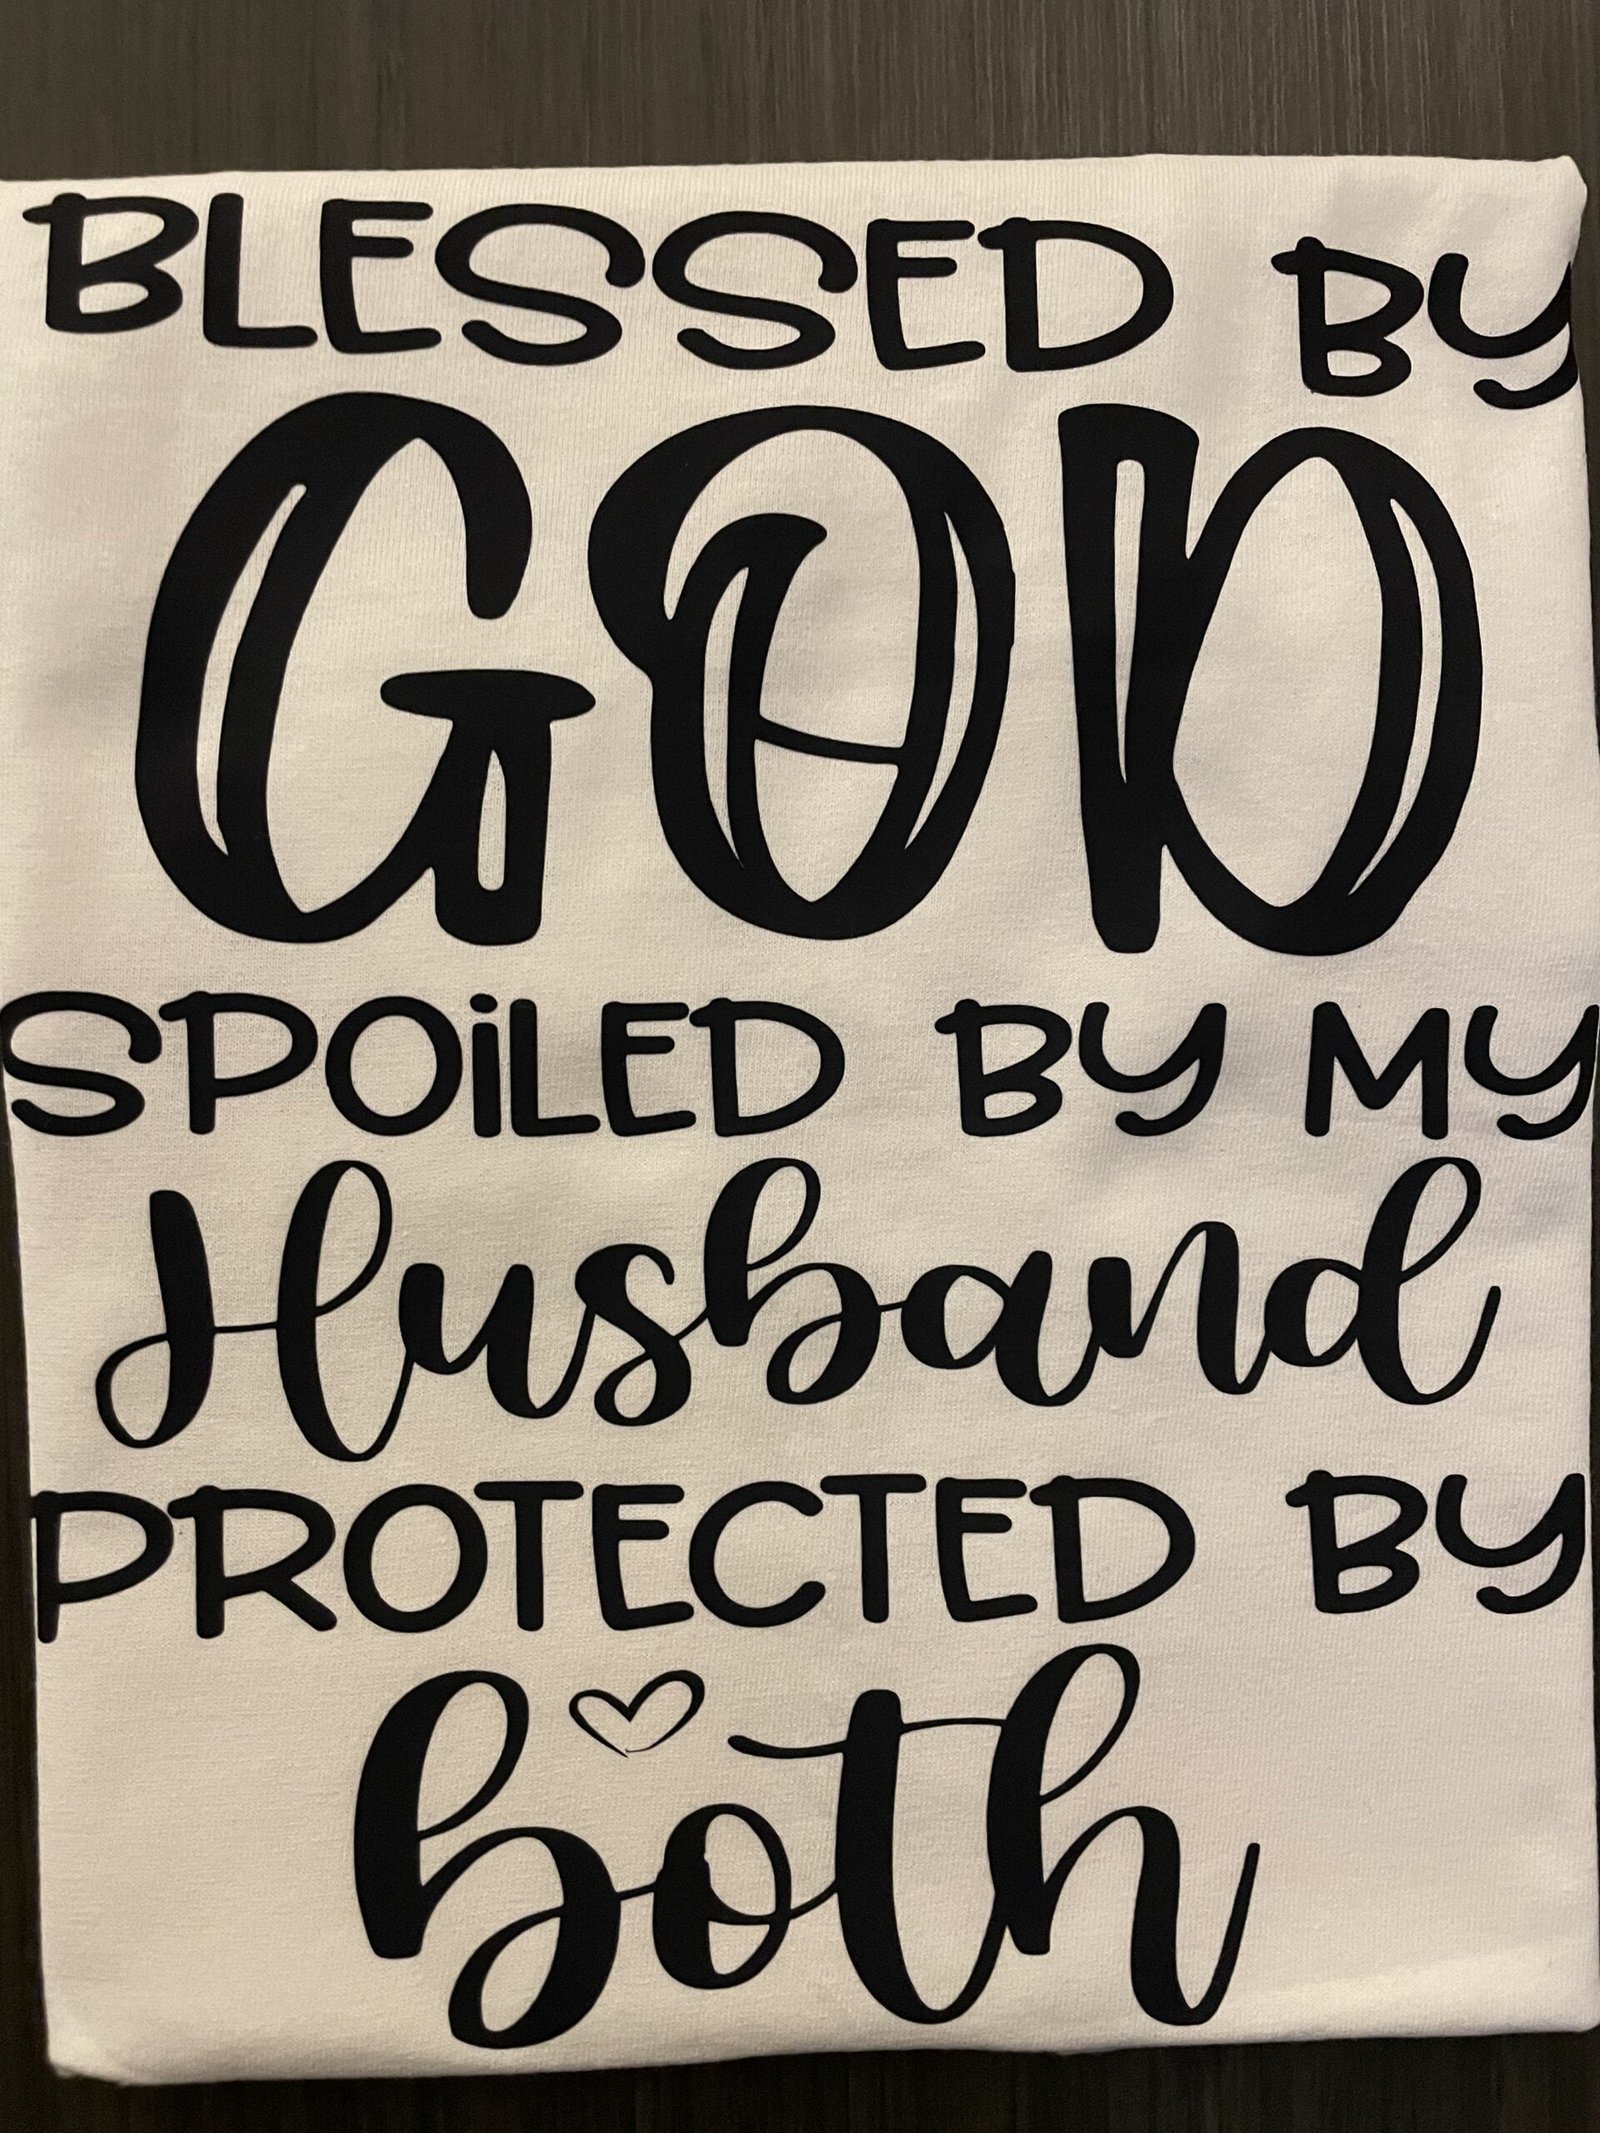 BLESSED BY
GOD
SPOiLED BY MY
Husband
PROTECTED BY
both